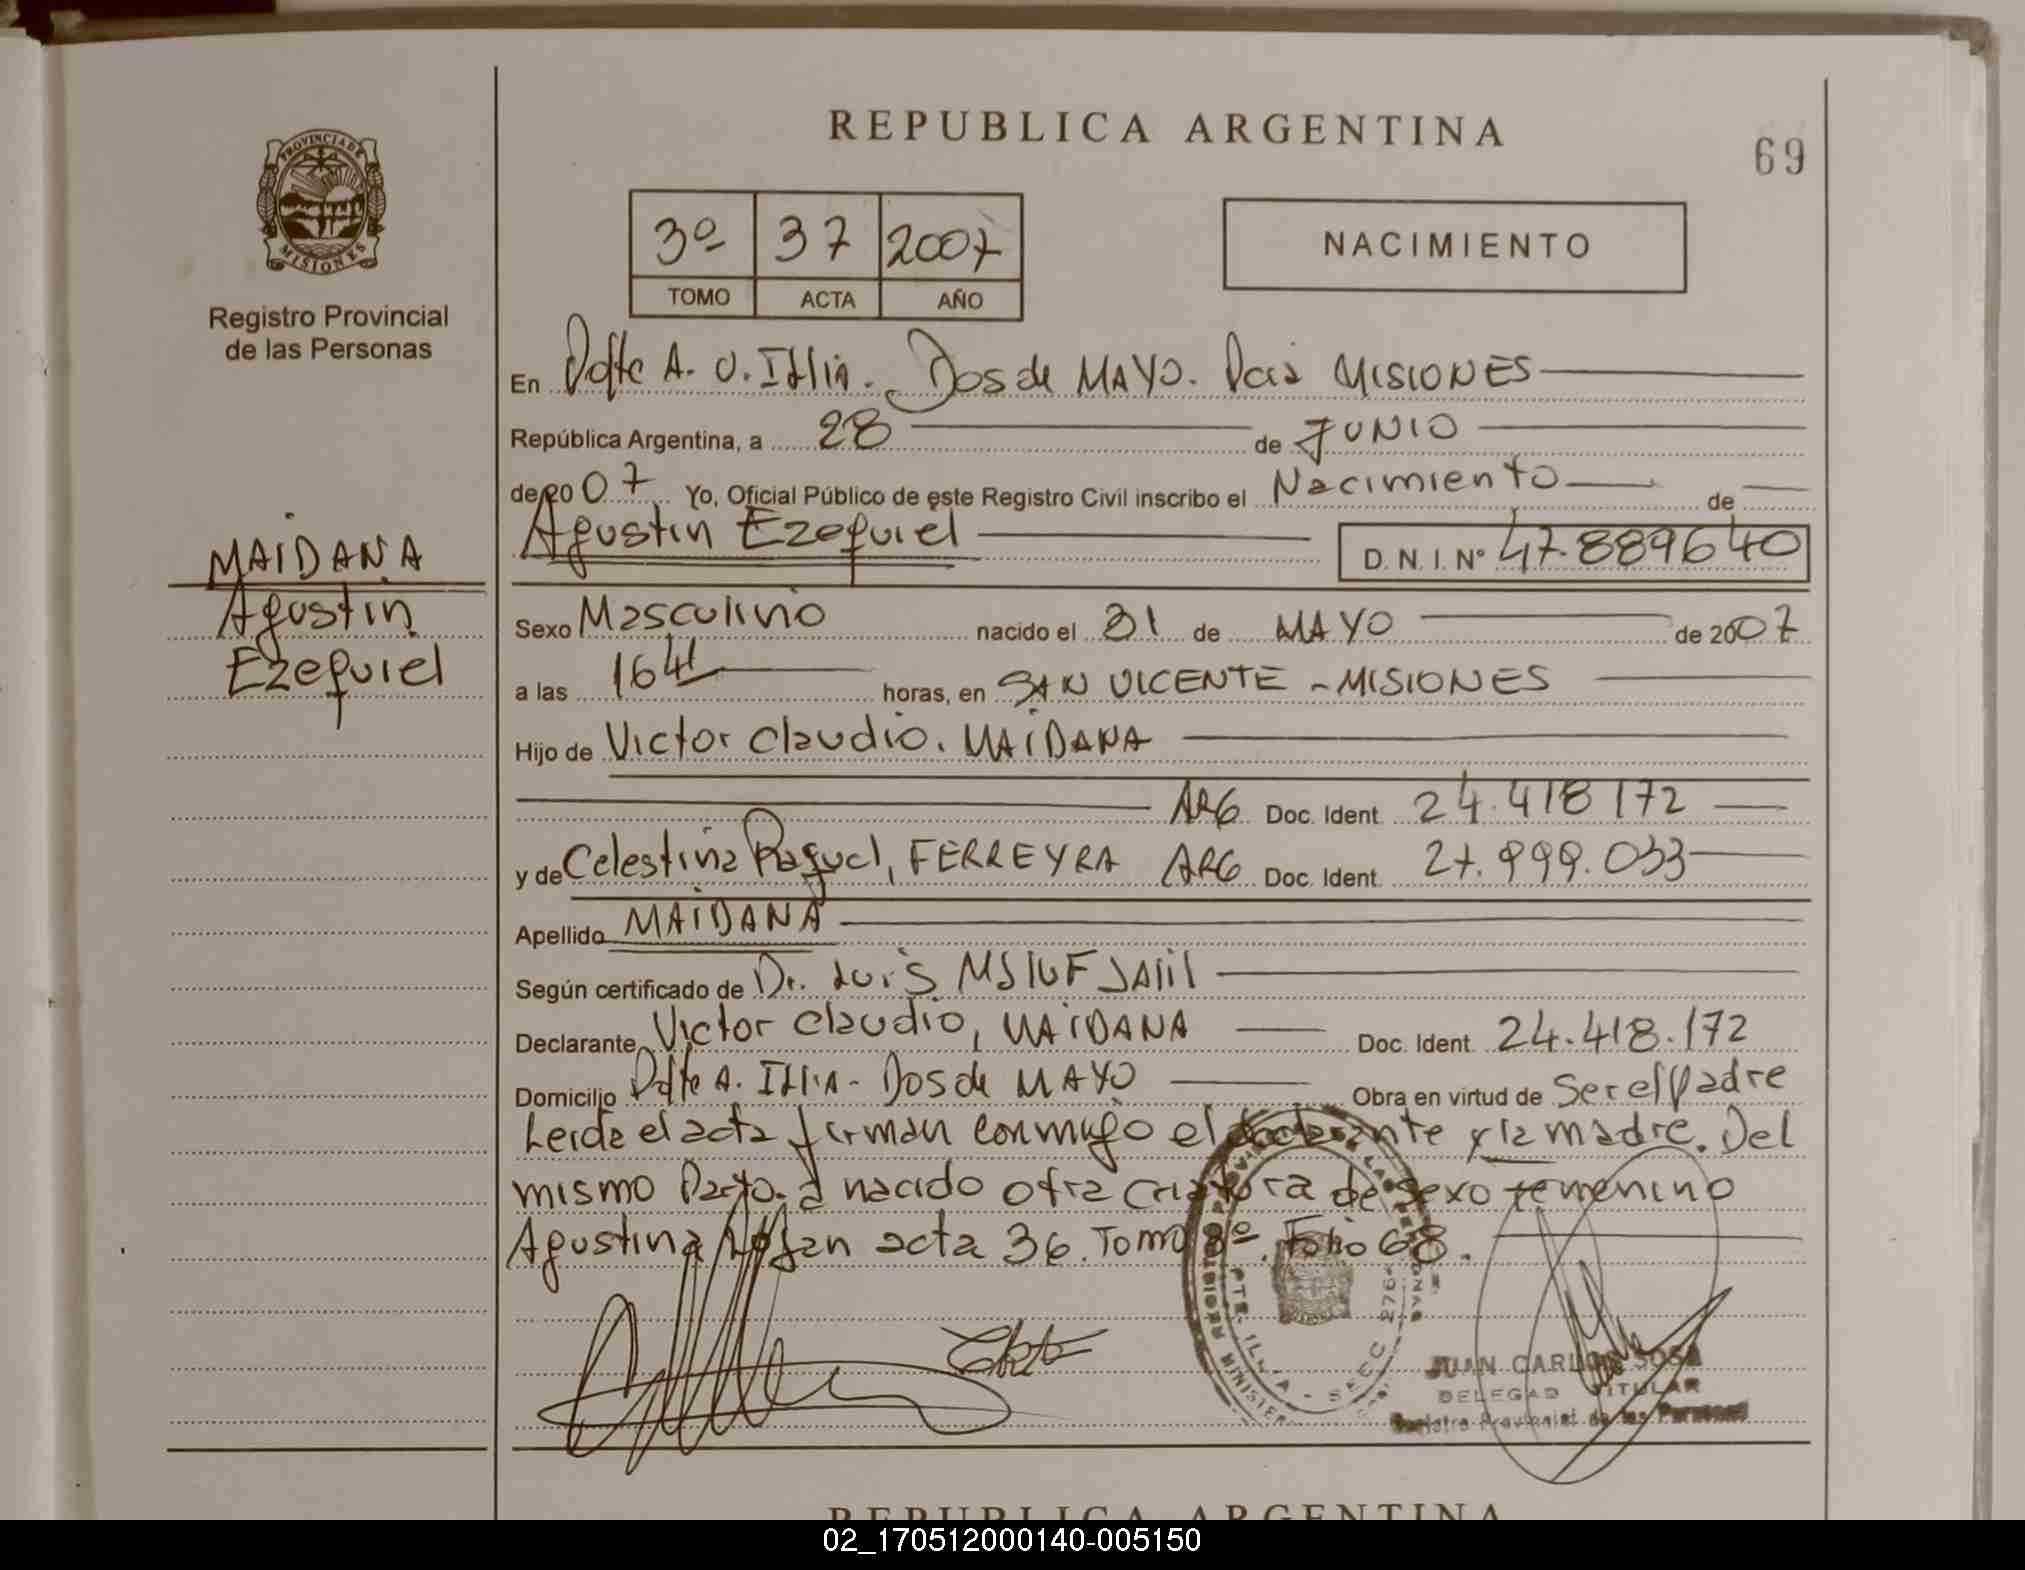 REPUBLICA ARGENTINA
69
PROVINCIA DE
MISIONES
Registro Provincial
de las Personas
3º 37 2007
TOMO ACTA AÑO
NACIMIENTO
En Pdte A. U. Illia. Dos de MAYO. Pcia MISIONES
República Argentina, a 28 de JUNIO
de 20 07 Yo, Oficial Público de este Registro Civil inscribo el Nacimiento de
Agustin Ezequiel D. N. I. Nº 47.889640
MAIDANA
Agustin
Ezequiel
Sexo Masculino nacido el 31 de MAYO de 2007
a las 16 horas, en SAN VICENTE - MISIONES
Hijo de Victor Claudio. MAIDANA
ARG Doc. Ident 24.418172
y de Celestina Raquel, FERREYRA ARG Doc. Ident. 27.999.033
Apellido MAIDANA
Según certificado de Dr. Luis
Declarante Victor Claudio, MAIDANA Doc. Ident 24.418.172
Domicilio Pdte A. Illia - Dos de MAYO Obra en virtud de Ser el Padre
Leida el acta firman conmigo el declarante y la madre. Del
mismo Parto. a nacido otra criatura de sexo femenino
Agustina acta 36. Tomo 3º. Folio 68.
JUAN CARLOS SOSA
DELEGADO TITULAR
Registro Provincial de las Personas
REPUBLICA ARGENTINA
02_170512000140-005150